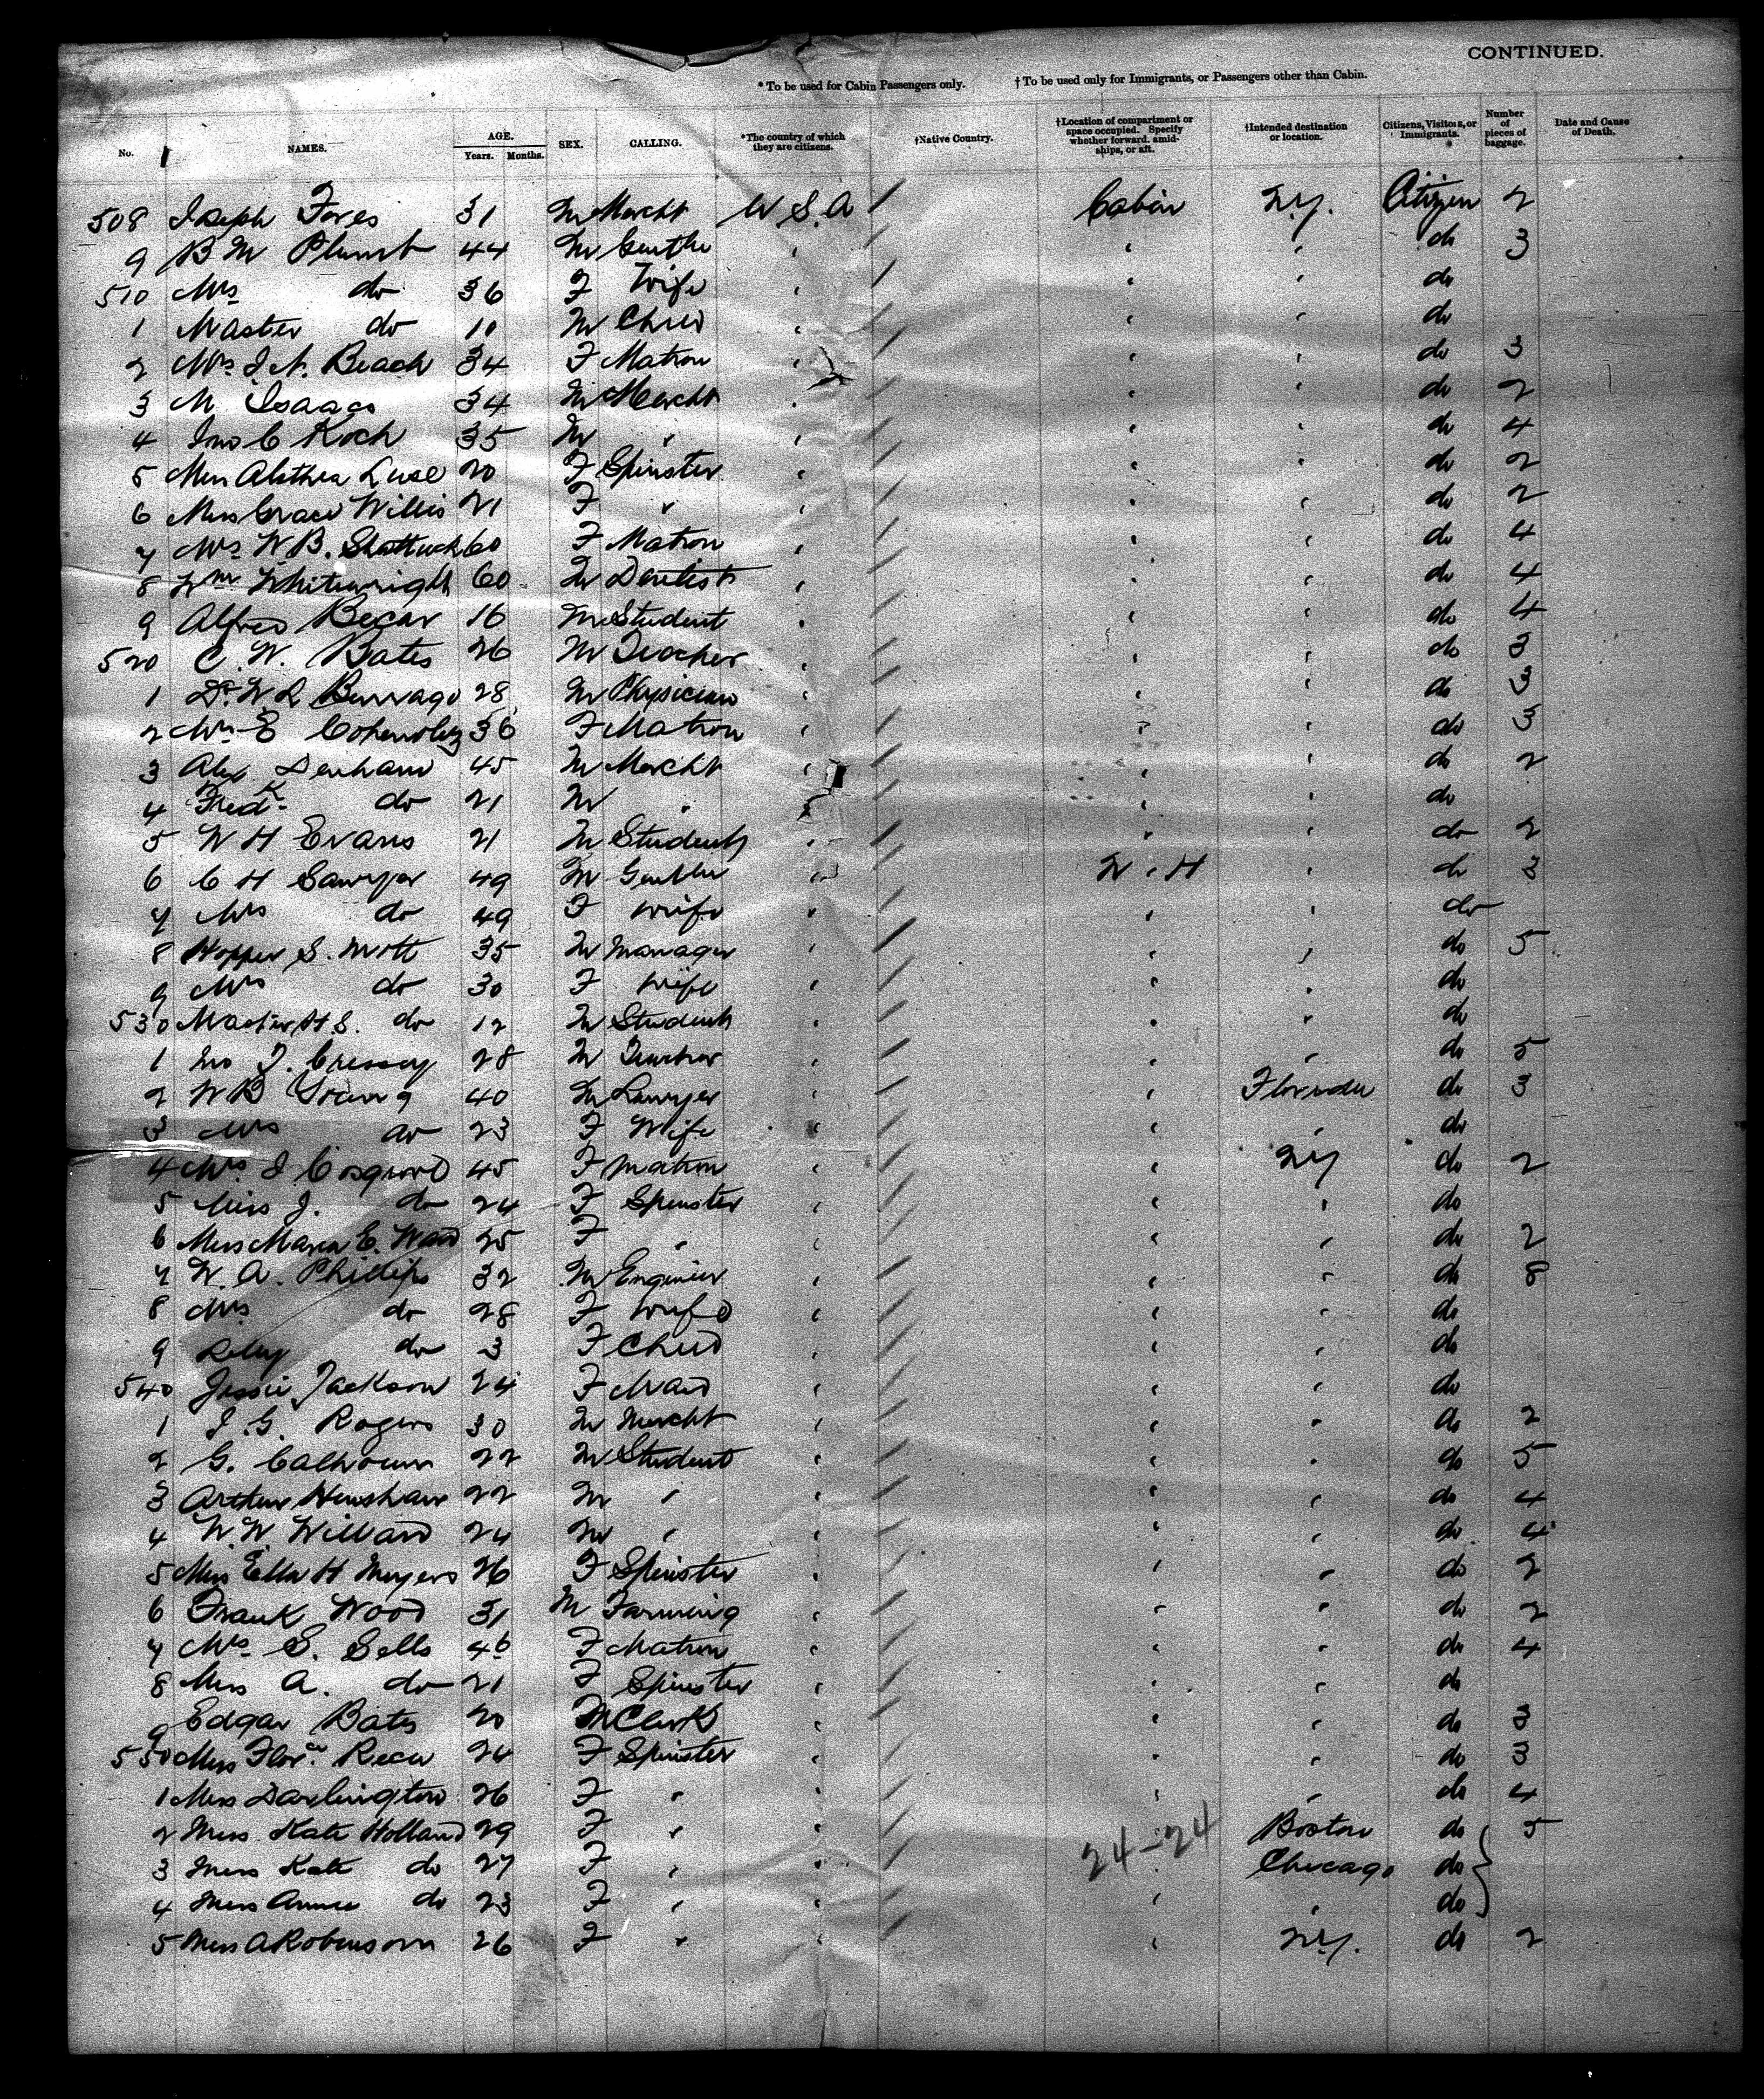 CONTINUED.
* To be used for Cabin Passengers only. † To be used only for Immigrants, or Passengers other than Cabin.
No. NAMES. AGE. Years. Months. SEX. CALLING. *The country of which they are citizens. †Native Country. †Location of compartment or space occupied. Specify whether forward, amidships, or aft. †Intended destination or location. Citizens, Visitors, or Immigrants. Number of pieces of baggage. Date and Cause of Death.
508 Joseph Fores 31 M Mercht U S A / Cabin N.Y. Citizen 2
9 B M Plumb 44 M / do 3
510 Mrs do 36 F Wife / do
1 Master do 10 M Child / do
2 Mrs J. N. Beach 34 F Matron / do 3
3 M Isaacs 34 M Mercht / do 2
4 Jno C Koch 35 M " / do 4
5 Miss Alethea Luse 20 F Spinster / do 2
6 Miss Grace Willis 21 F " / do 2
7 Mrs W B. Shattuck 60 F Matron / do 4
8 Wm Whitewright 60 M Dentist / do 4
9 Alfred Becar 16 M Student / do 4
520 C. W. Bates 26 M Teacher / do 3
1 Dr. W. L Burrage 28 M Physician / do 3
2 Mrs E 36 F Matron / do 3
3 Alex Denham 45 M Mercht / do 2
4 Fredk do 21 M " / do
5 W H Evans 21 M Student / do 2
6 C H Sawyer 49 M Gentln / do 3
7 Mrs do 49 F Wife / do
8 Hopper S. Mott 35 M Manager / do 5
9 Mrs do 30 F Wife / do
530 Master H S. do 12 M Student / do
1 Jno J. Cressey 28 M Teacher / do 5
2 W B Young 40 M Lawyer / Florida do 3
3 Mrs do 23 F Wife / do
4 Mrs. J. Cosgrove 45 F Matron / NY do 2
5 Miss J. do 24 F Spinster / do
6 Miss Maria E. Ward 25 F " / do 2
7 W. A. Phillips 32 M Engineer / do 8
8 Mrs do 28 F Wife / do
9 do 3 F Child / do
540 Jessie Jackson 24 F Maid / do
1 J. G. Rogers 30 M Mercht / do 2
2 G. Calhoun 22 M Student / do 5
3 Arthur Henshaw 22 M " / do 4
4 W. W Willard 24 M " / do 4
5 Miss Ella H Meyers 26 F Spinster / do 2
6 Frank Wood 31 M Farming / do 2
7 Mrs S. Sells 46 F Matron / do 4
8 Miss A. do 21 F Spinster / do
9 Edgar Bates 20 M Clerk / do 3
550 Miss Florce 24 F Spinster / do 3
1 Miss Darlington 26 F " / do 4
2 Miss Kate Holland 29 F " / 24-24 Boston do 5
3 Miss Kate do 27 F " / Chicago do
4 Miss Annie do 23 F " / do
5 Miss A Robinson 26 F " / N.Y. do 2